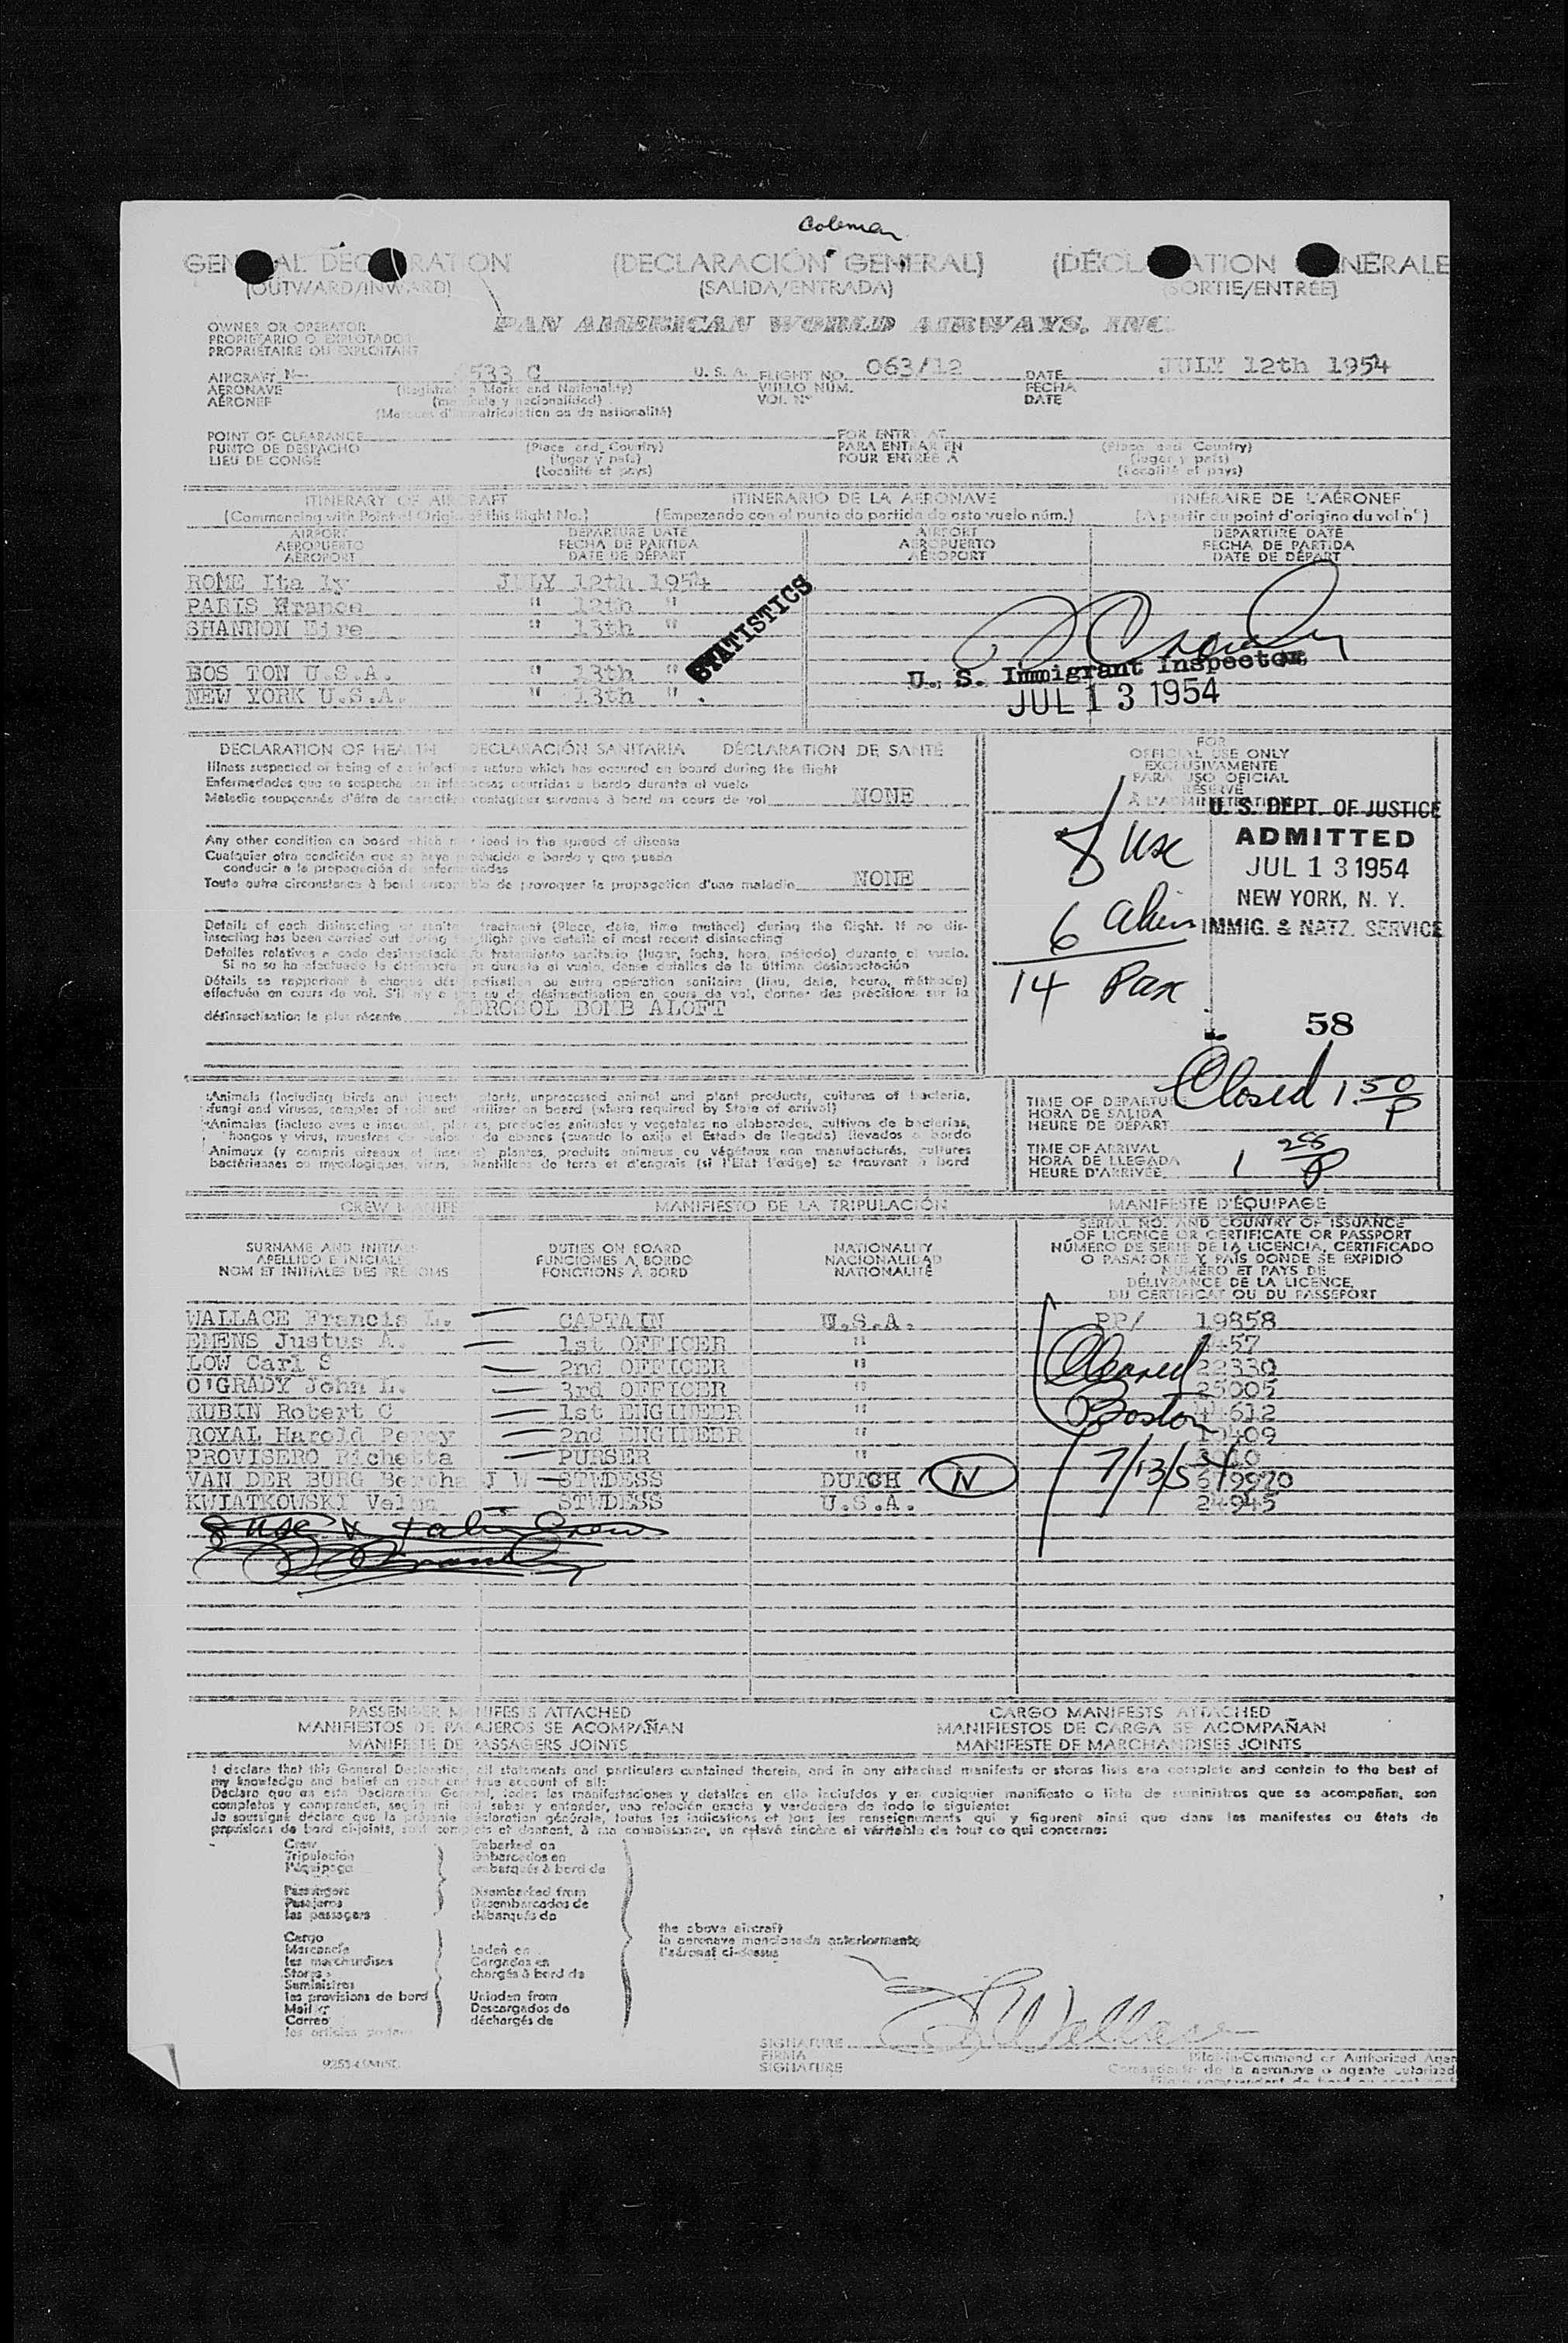 Coleman
GENERAL DECLARATION (DECLARACIÓN GENERAL) (DÉCLARATION GÉNÉRALE
(OUTWARD/INWARD) (SALIDA/ENTRADA) (SORTIE/ENTRÉE)
OWNER OR OPERATOR PAN AMERICAN WORLD AIRWAYS, INC
PROPIETARIO O EXPLOTADOR
PROPRIÉTAIRE OU EXPLOITANT
AIRCRAFT N- 533 C U. S. A. FLIGHT NO. 063/12 DATE JULY 12th 1954
AERONAVE (Registration Marks and Nationality) VUELO NÚM. FECHA
AÉRONEF (matrícula y nacionalidad) VOL Nº DATE
(Marques d'immatriculation ou de nationalité)
POINT OF CLEARANCE FOR ENTRY AT
PUNTO DE DESPACHO (Place and Country) PARA ENTRAR EN (Place and Country)
LIEU DE CONGÉ (lugar y país) POUR ENTRÉE A (lugar y país)
(Localité et pays) (Localité et pays)
ITINERARY OF AIRCRAFT ITINERARIO DE LA AERONAVE ITINÉRAIRE DE L'AÉRONEF
(Commencing with Point of Origin of this flight No.) (Empezando con el punto de partida de este vuelo núm.) (A partir du point d'origine du vol nº)
AIRPORT DEPARTURE DATE AIRPORT DEPARTURE DATE
AEROPUERTO FECHA DE PARTIDA AEROPUERTO FECHA DE PARTIDA
AÉROPORT DATE DE DÉPART AÉROPORT DATE DE DÉPART
ROME Ita ly JULY 12th 1954
PARIS France " 12th "
SHANNON Eire " 13th "
STATISTICS
BOS TON U.S.A. " 13th "
NEW YORK U.S.A. " 13th "
U. S. Immigrant Inspector
JUL 13 1954
DECLARATION OF HEALTH DECLARACIÓN SANITARIA DÉCLARATION DE SANTÉ
Illness suspected of being of an infectious nature which has occured on board during the flight
Enfermedades que se sospecha son infecciosas ocurridas a bordo durante el vuelo
Maladie soupçonnés d'être de caractère contagieux survenue à bord en cours de vol NONE
Any other condition on board which may lead to the spread of disease
Cualquier otra condición que se haya producido a bordo y que pueda
conducir a la propagación de enfermedades
Toute autre circonstance à bord susceptible de provoquer la propagation d'une maladie NONE
Details of each disinsecting or sanitary treatment (Place, date, time method) during the flight. If no dis-
insecting has been carried out during the flight give details of most recent disinsecting
Detalles relativos a cada desinsectación o tratamiento sanitario (lugar, fecha, hora, método) durante el vuelo.
Si no se ha efectuado la desinsectación durante el vuelo, dense detalles de la última desinsectación
Détails se rapportant à chaque désinsectisation ou autre opération sanitaire (lieu, date, heure, méthode)
effectuée en cours de vol. S'il n'y a pas eu de désinsectisation en cours de vol, donner des précisions sur la
désinsectisation la plus récente AEROSOL BOMB ALOFT
FOR
OFFICIAL USE ONLY
EXCLUSIVAMENTE
PARA USO OFICIAL
RÉSERVÉ
À L'ADMINISTRATION
U. S. DEPT. OF JUSTICE
ADMITTED
JUL 13 1954
NEW YORK, N. Y.
IMMIG. & NATZ. SERVICE
8 usc
6 alien
14 Pax
58
Closed 1 50 P
Animals (including birds and insects) plants, unprocessed animal and plant products, cultures of bacteria,
fungi and viruses, samples of soil and fertilizer on board (where required by State of arrival)
Animales (incluso aves e insectos), plantas, productos animales y vegetales no elaborados, cultivos de bacterias,
hongos y virus, muestras de suelos y de abonos (cuando lo exija el Estado de llegada) llevados a bordo
Animaux (y compris oiseaux et insectes) plantes, produits animaux ou végétaux non manufacturés, cultures
bactériennes ou mycologiques, virus, échantillons de terre et d'engrais (si l'Etat l'exige) se trouvant à bord
TIME OF DEPARTURE
HORA DE SALIDA
HEURE DE DÉPART
TIME OF ARRIVAL
HORA DE LLEGADA
HEURE D'ARRIVÉE
CREW MANIFEST MANIFIESTO DE LA TRIPULACIÓN MANIFESTE D'ÉQUIPAGE
SURNAME AND INITIALS DUTIES ON BOARD NATIONALITY SERIAL NO. AND COUNTRY OF ISSUANCE
APELLIDO E INICIALES FUNCIONES A BORDO NACIONALIDAD OF LICENCE OR CERTIFICATE OR PASSPORT
NOM ET INITIALES DES PRÉNOMS FONCTIONS À BORD NATIONALITÉ NÚMERO DE SERIE DE LA LICENCIA, CERTIFICADO
O PASAPORTE Y PAÍS DONDE SE EXPIDIÓ
NUMÉRO ET PAYS DE
DÉLIVRANCE DE LA LICENCE,
DU CERTIFICAT OU DU PASSEPORT
WALLACE Francis L. CAPTAIN U.S.A. PP/ 19858
EMENS Justus A. 1st OFFICER "
LOW Carl S 2nd OFFICER " 22330
O'GRADY John L. 3rd OFFICER " 25005
RUBIN Robert C 1st ENGINEER "
ROYAL Harold Percy 2nd ENGINEER "
PROVISERO Richetta PURSER "
VAN DER BURG Bertha J W STWDESS DUTCH N
KWIATKOWSKI Velma STWDESS U.S.A. 24945
Cleared
Boston
7/13/54
PASSENGER MANIFESTS ATTACHED CARGO MANIFESTS ATTACHED
MANIFIESTOS DE PASAJEROS SE ACOMPAÑAN MANIFIESTOS DE CARGA SE ACOMPAÑAN
MANIFESTE DE PASSAGERS JOINTS MANIFESTE DE MARCHANDISES JOINTS
I declare that this General Declaration, all statements and particulars contained therein, and in any attached manifests or stores lists are complete and contain to the best of
my knowledge and belief an exact and true account of all:
Declaro que en esta Declaración General, todas las manifestaciones y detalles en ella incluídos y en cualquier manifiesto o lista de suministros que se acompañan, son
completos y comprenden, según mi leal saber y entender, una relación exacta y verdadera de todo lo siguiente:
Je soussigné déclare que la présente déclaration générale, toutes les indications et tous les renseignements qui y figurent ainsi que dans les manifestes ou états de
provisions de bord ci-joints, sont complets et donnent, à ma connaissance, un relevé sincère et véritable de tout ce qui concerne:
Crew Embarked on
Tripulación Embarcados en
l'équipage embarqués à bord de
Passengers Disembarked from
Pasajeros Desembarcados de
les passagers débarqués de
the above aircraft
la aeronave mencionada anteriormente
l'aéronef ci-dessus
Cargo
Mercancía Laden on
les marchandises Cargados en
Stores chargés à bord de
Suministros
les provisions de bord Unladen from
Mail Descargados de
Correo déchargés de
SIGNATURE F L Wallace
FIRMA
SIGNATURE
Pilot-in-Command or Authorized Agen
de la aeronave o agente autorizad